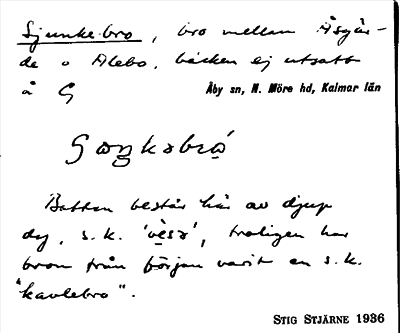 Sjunkebro, bro mellan Åsgär-
de o Alebo, bäcken ej utsatt
å G
Åby sn, N. Möre hd, Kalmar län
Botten består här av djup
dy, s. k. 'vesa', troligen har
bron från början varit en s. k.
"kavlebro".
STIG STJÄRNE 1936